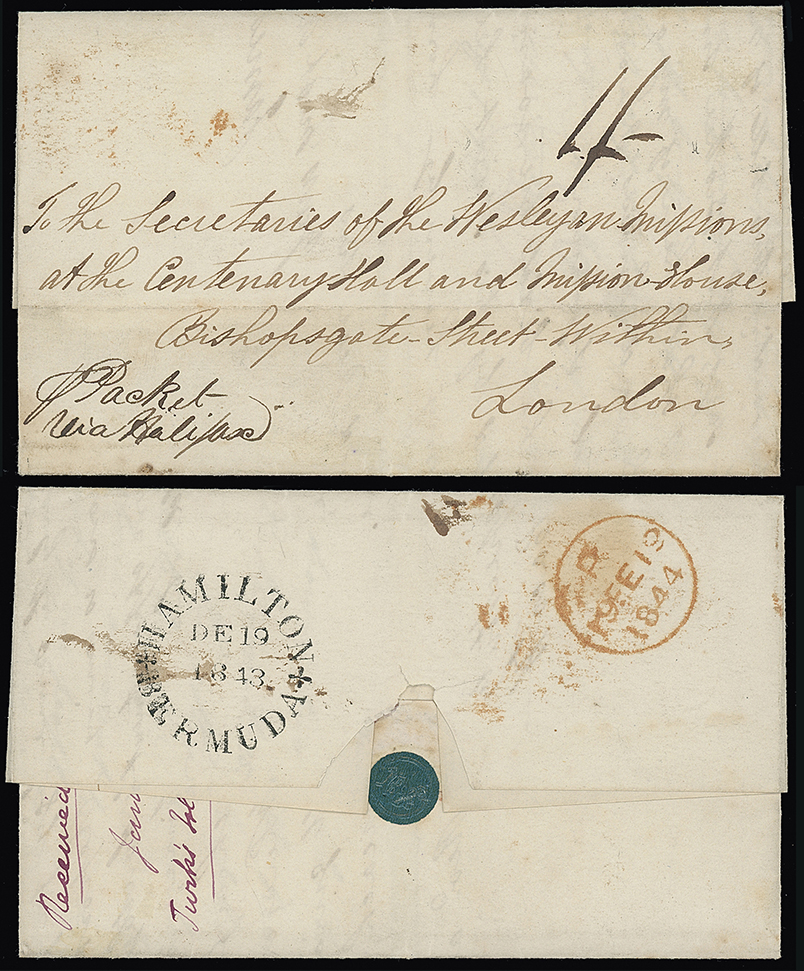 1/-
To the Secretaries of the Wesleyan Missions,
at the Centenary Hall and Mission House,
Bishopsgate Street Within,
London
Packet
via Halifax
HAMILTON
DE 19
1843
BERMUDA
FE 19
1844
Received
Jan
Turks Isl